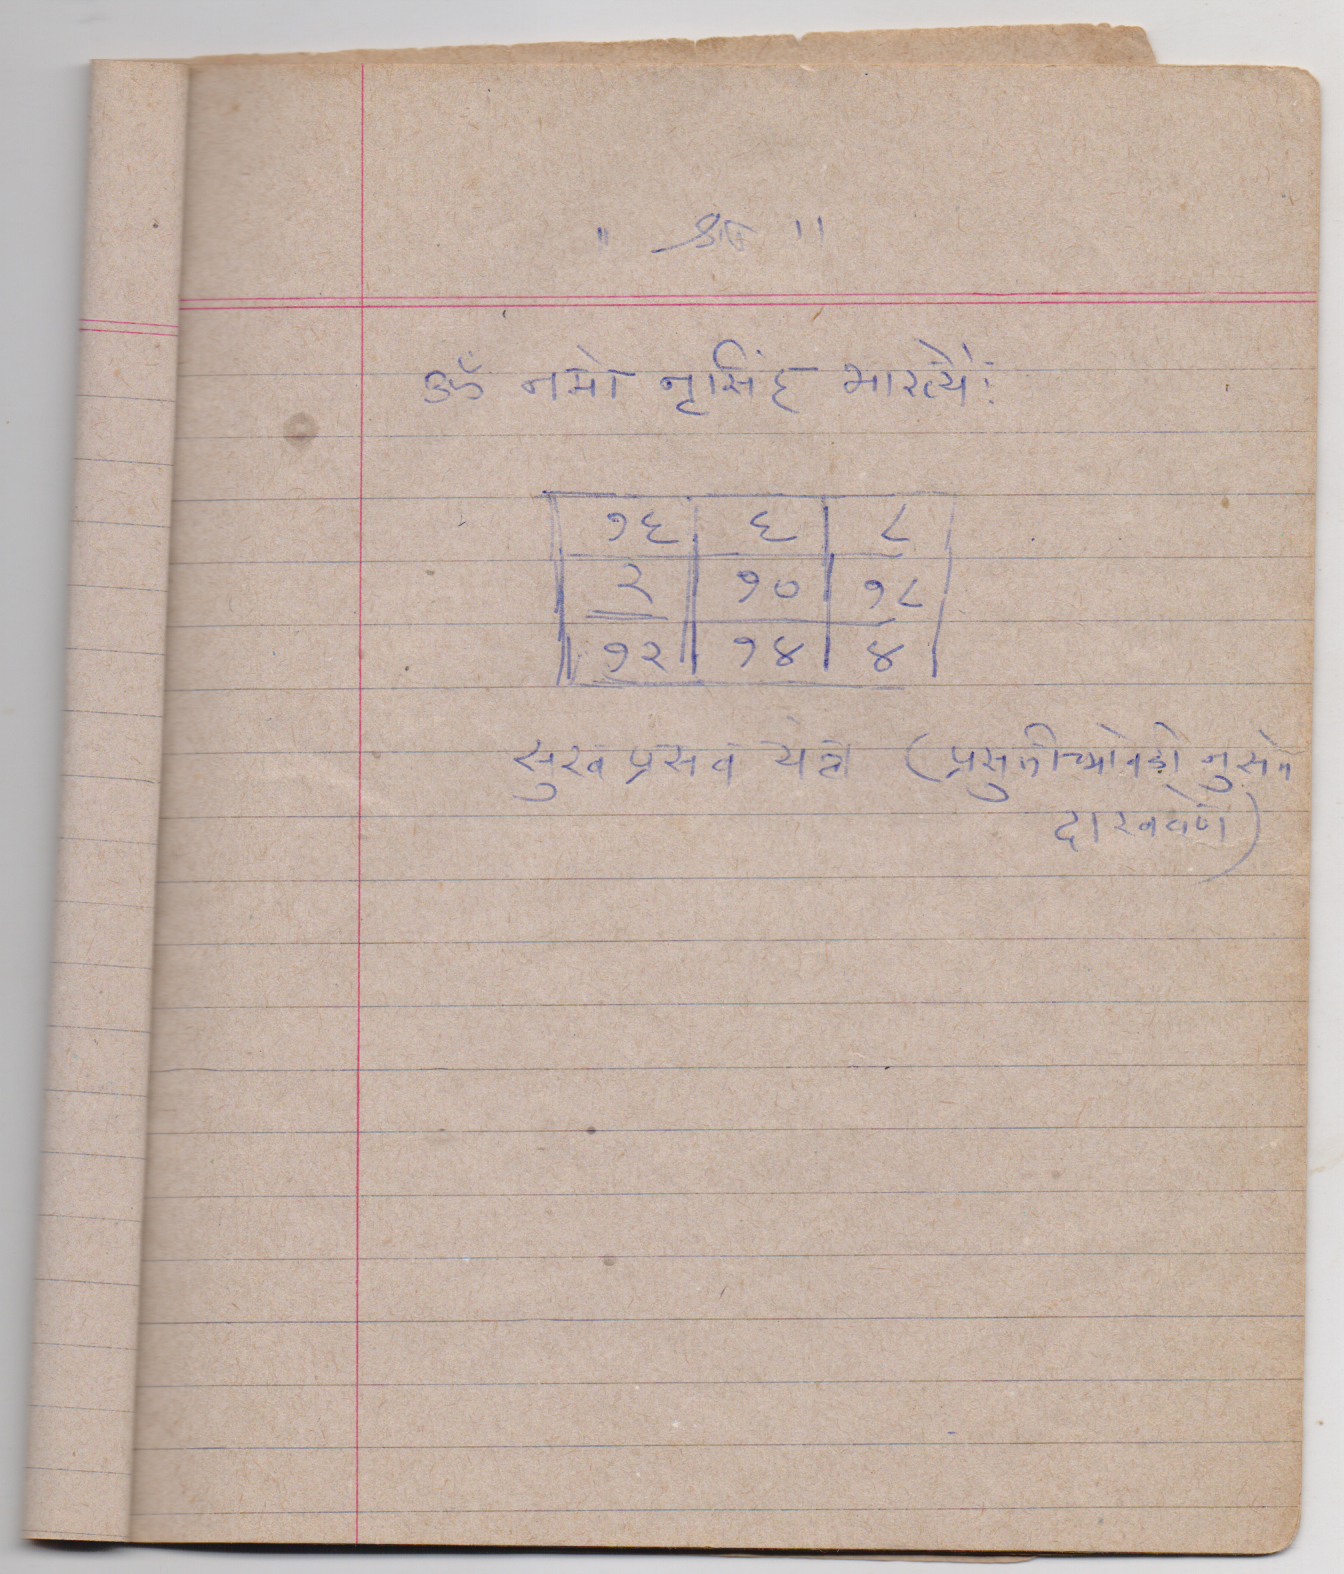 ॥ श्री ॥
ॐ नमो नृसिंह भारत्यैः
१६ ६ ८
२ १० १८
१२ १४ ४
सुख प्रसव यंत्र (प्रसुतीच्यावेळी नुसते
दाखवणे)